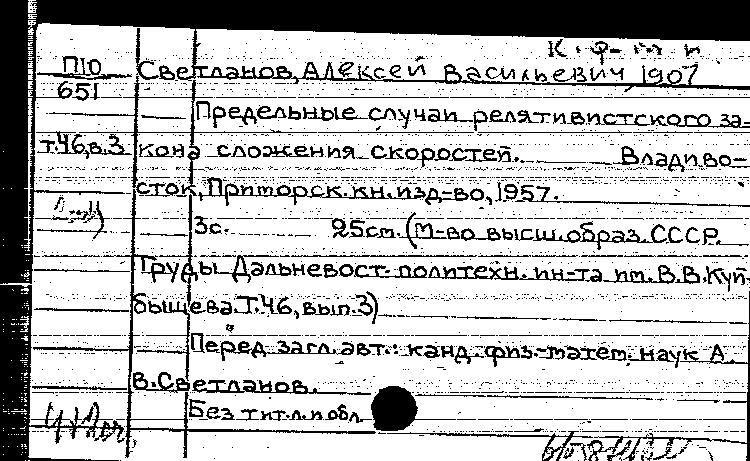 К. ф-м н
П10 Светланов, Алексей Васильевич, 1907
651
Предельные случаи релятивистского за-
т.46,в.3 кона сложения скоростей. Владиво-
сток, Приморск. кн. изд-во, 1957.
3с. 25см. (М-во высш. образ. СССР.
Труды Дальневост. политехн. ин-та им. В.В.Куй-
бышева. Т.46, вып.3)
Перед загл. авт.: канд. физ.-матем. наук А.
В.Светланов.
Без тит.л. и обл.